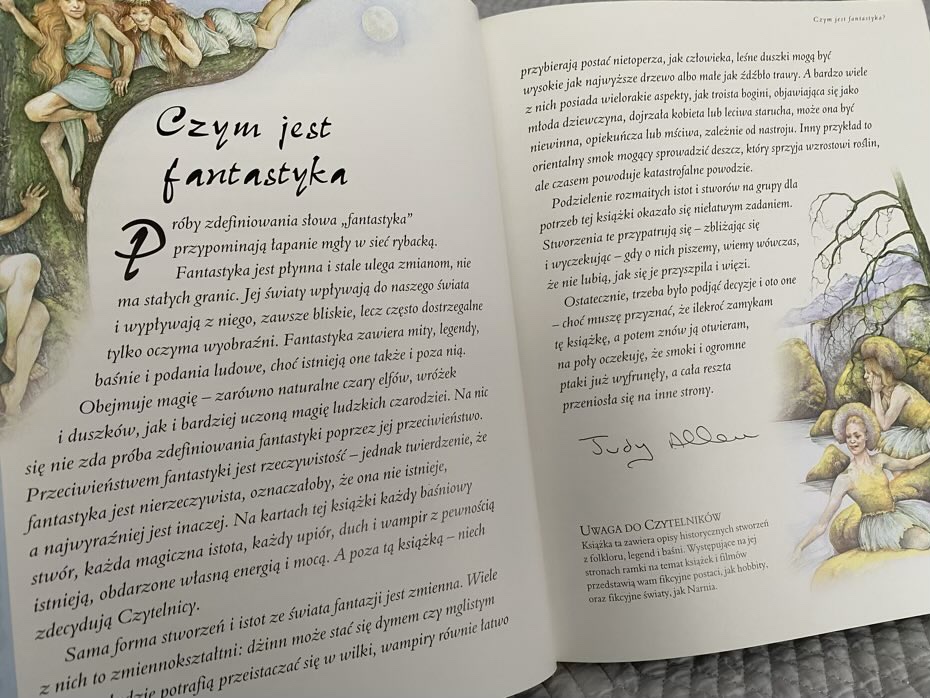 Czym jest
fantastyka
Próby zdefiniowania słowa „fantastyka”
przypominają łapanie mgły w sieć rybacką.
Fantastyka jest płynna i stale ulega zmianom, nie
ma stałych granic. Jej światy wpływają do naszego świata
i wypływają z niego, zawsze bliskie, lecz często dostrzegalne
tylko oczyma wyobraźni. Fantastyka zawiera mity, legendy,
baśnie i podania ludowe, choć istnieją one także i poza nią.
Obejmuje magię – zarówno naturalne czary elfów, wróżek
i duszków, jak i bardziej uczoną magię ludzkich czarodziei. Na nic
się nie zda próba zdefiniowania fantastyki poprzez jej przeciwieństwo.
Przeciwieństwem fantastyki jest rzeczywistość – jednak twierdzenie, że
fantastyka jest nierzeczywista, oznaczałoby, że ona nie istnieje,
a najwyraźniej jest inaczej. Na kartach tej książki każdy baśniowy
stwór, każda magiczna istota, każdy upiór, duch i wampir z pewnością
istnieją, obdarzone własną energią i mocą. A poza tą książką – niech
zdecydują Czytelnicy.
Sama forma stworzeń i istot ze świata fantazji jest zmienna. Wiele
z nich to zmiennokształtni: dżinn może stać się dymem czy mglistym
potrafią przeistaczać się w wilki, wampiry równie łatwo
Czym jest fantastyka?
przybierają postać nietoperza, jak człowieka, leśne duszki mogą być
wysokie jak najwyższe drzewo albo małe jak źdźbło trawy. A bardzo wiele
z nich posiada wielorakie aspekty, jak troista bogini, objawiająca się jako
młoda dziewczyna, dojrzała kobieta lub leciwa starucha, może ona być
niewinna, opiekuńcza lub mściwa, zależnie od nastroju. Inny przykład to
orientalny smok mogący sprowadzić deszcz, który sprzyja wzrostowi roślin,
ale czasem powoduje katastrofalne powodzie.
Podzielenie rozmaitych istot i stworów na grupy dla
potrzeb tej książki okazało się niełatwym zadaniem.
Stworzenia te przypatrują się – zbliżając się
i wyczekując – gdy o nich piszemy, wiemy wówczas,
że nie lubią, jak się je przyszpila i więzi.
Ostatecznie, trzeba było podjąć decyzje i oto one
– choć muszę przyznać, że ilekroć zamykam
tę książkę, a potem znów ją otwieram,
na poły oczekuję, że smoki i ogromne
ptaki już wyfrunęły, a cała reszta
przeniosła się na inne strony.
Judy Allen
UWAGA DO CZYTELNIKÓW
Książka ta zawiera opisy historycznych stworzeń
z folkloru, legend i baśni. Występujące na jej
stronach ramki na temat książek i filmów
przedstawią wam fikcyjne postaci, jak hobbity,
oraz fikcyjne światy, jak Narnia.